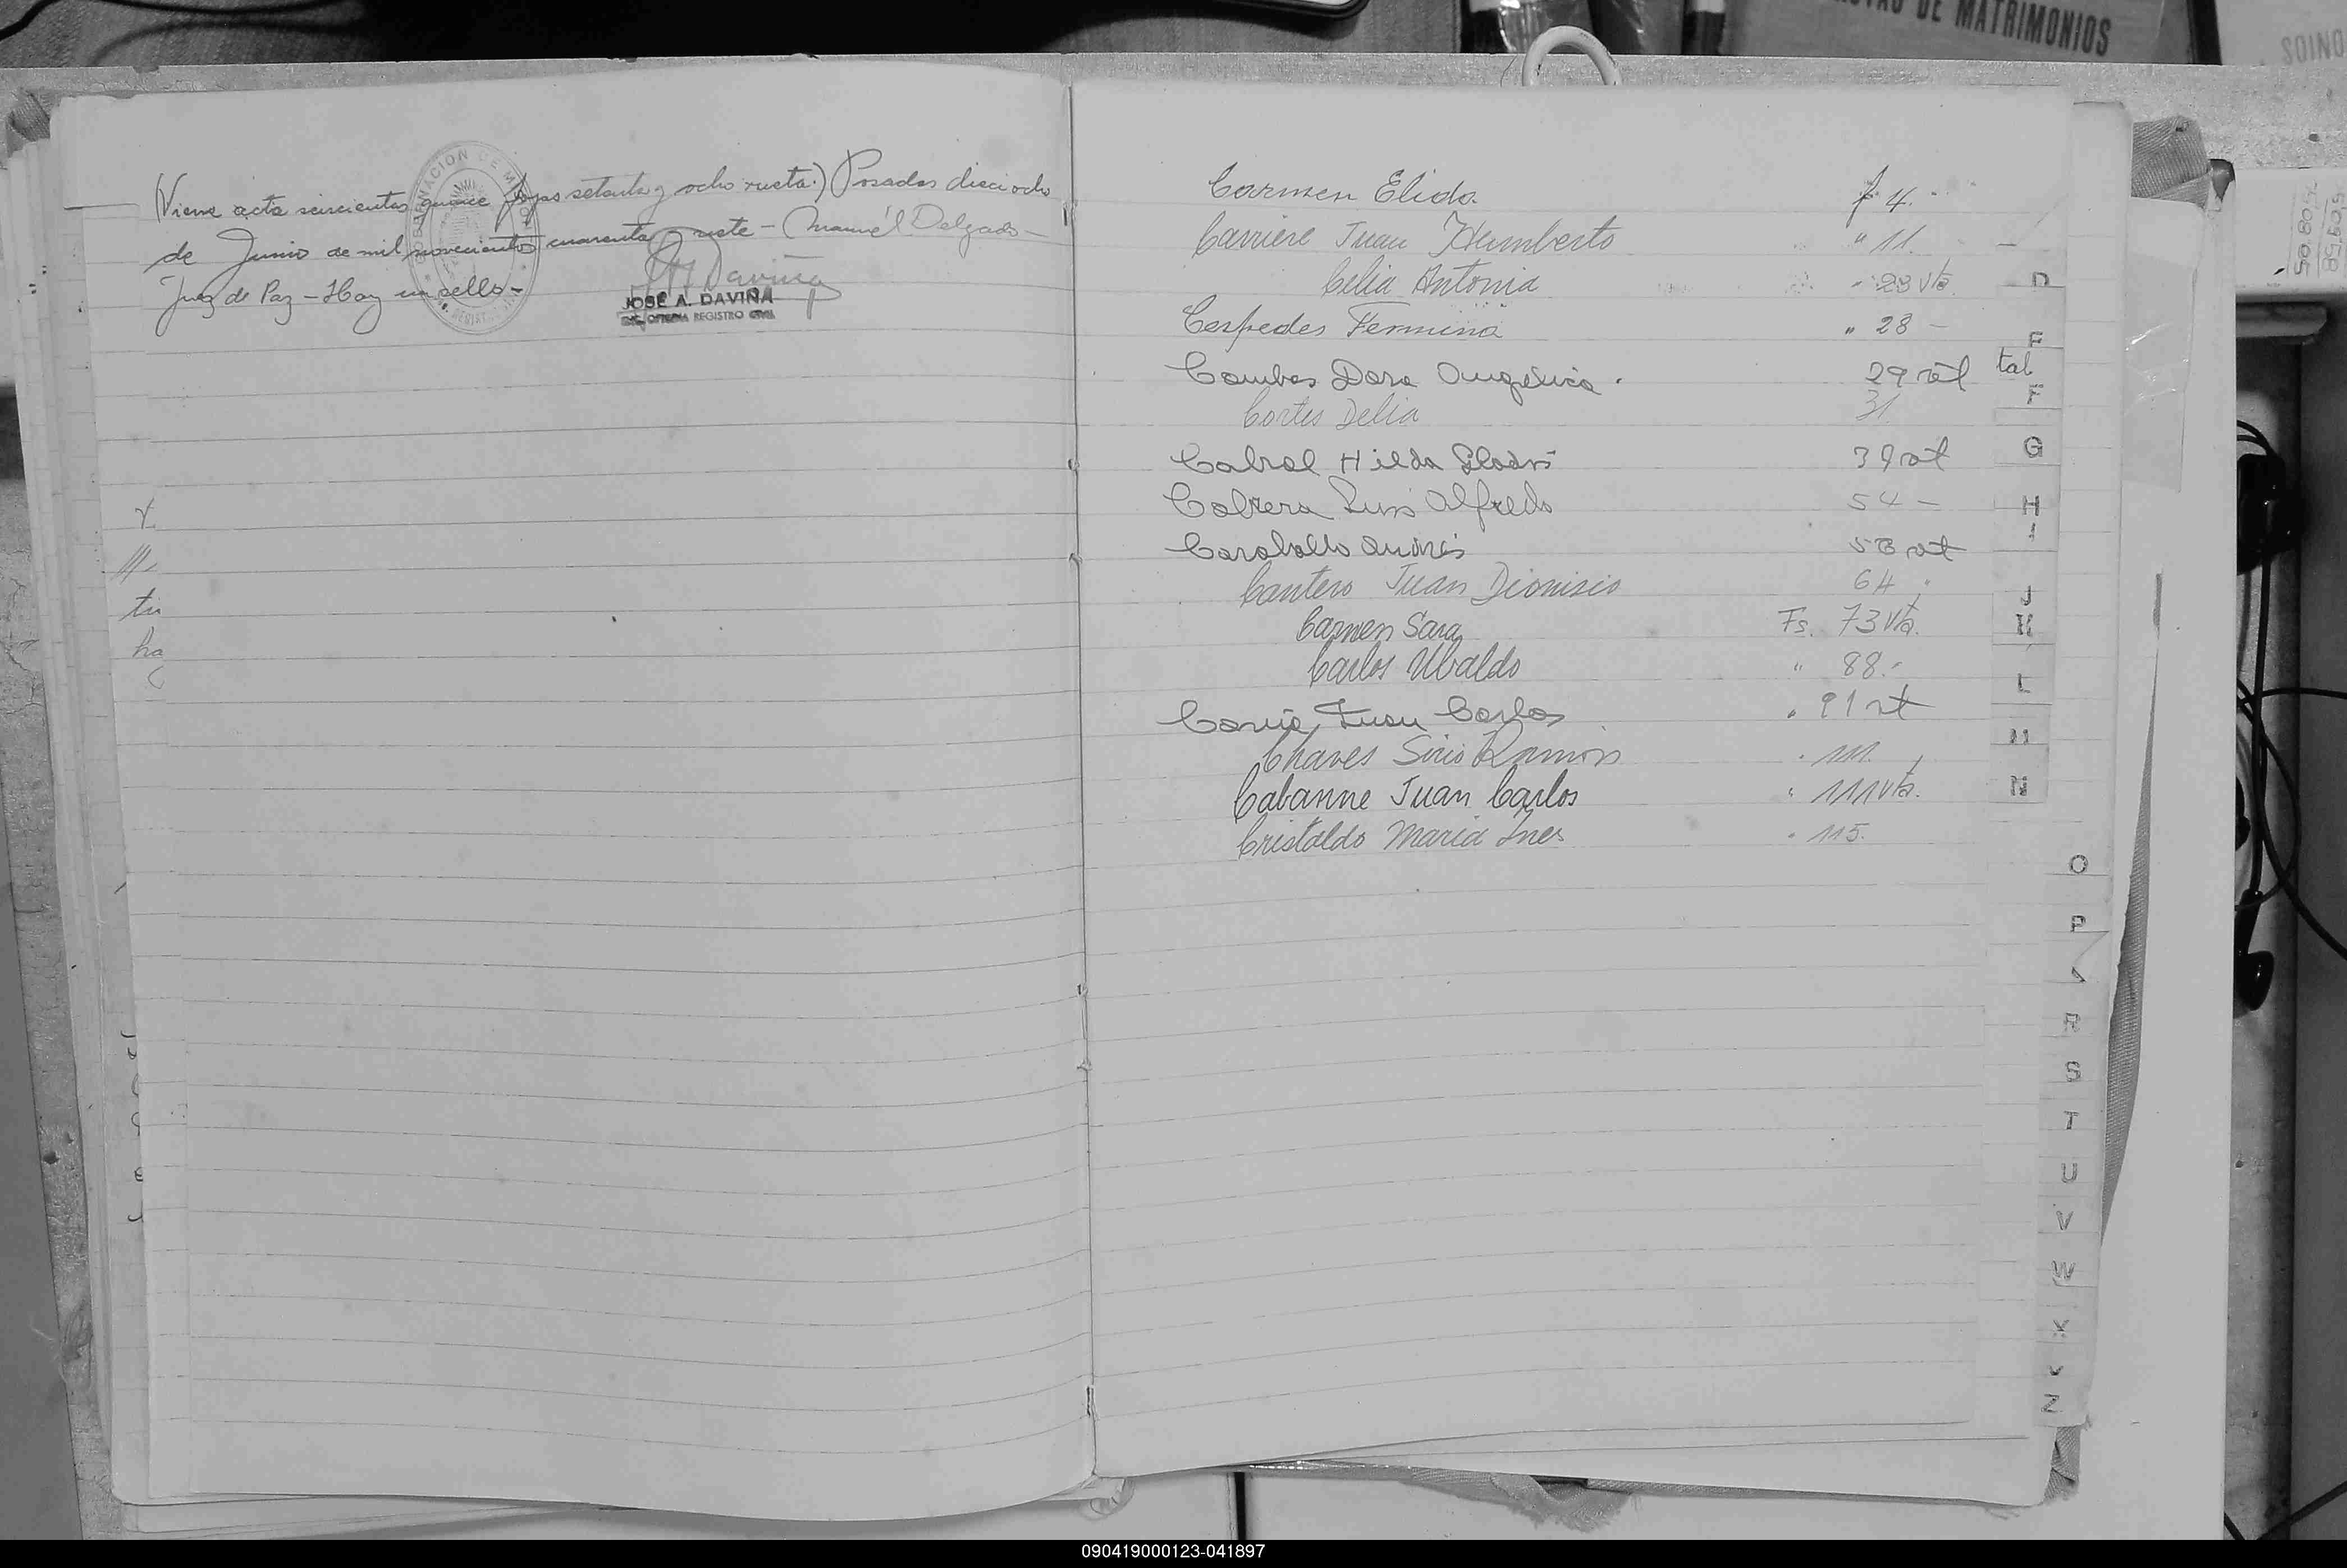 DE MATRIMONIOS
(Viene acta seiscientos quince fojas setenta y ocho vuelta.) Posadas dieciocho
de Junio de mil novecientos cuarenta y siete - Manuél Delgado -
Juez de Paz - Hay un sello -
JOSÉ A. DAVIÑA
OFICINA REGISTRO CIVIL
Carmen Elida. f 4.
Carriere Juan Humberto " 11.
Celia Antonia " 23 vta.
Cespedes Fermina " 28 -
Combes Dora Angelica. 29 vt
tal
Cortes Delia 31
Cabral Hilda Gladis 39 vt
Cabrera Luis Alfredo 54 -
Caraballo Andrés 58 vt
Cantero Juan Dionisio 64
Carmen Sara Fs. 73 vta.
Carlos Ubaldo " 88.-
Juan Carlos " 91 vt
Chaves Sirio Ramón " 111.
Cabanne Juan Carlos " 111 vta.
Cristaldo Maria Ines " 115.
D
E
F
G
H
I
J
K
L
M
N
O
P
R
S
T
U
V
W
X
Y
Z
090419000123-041897